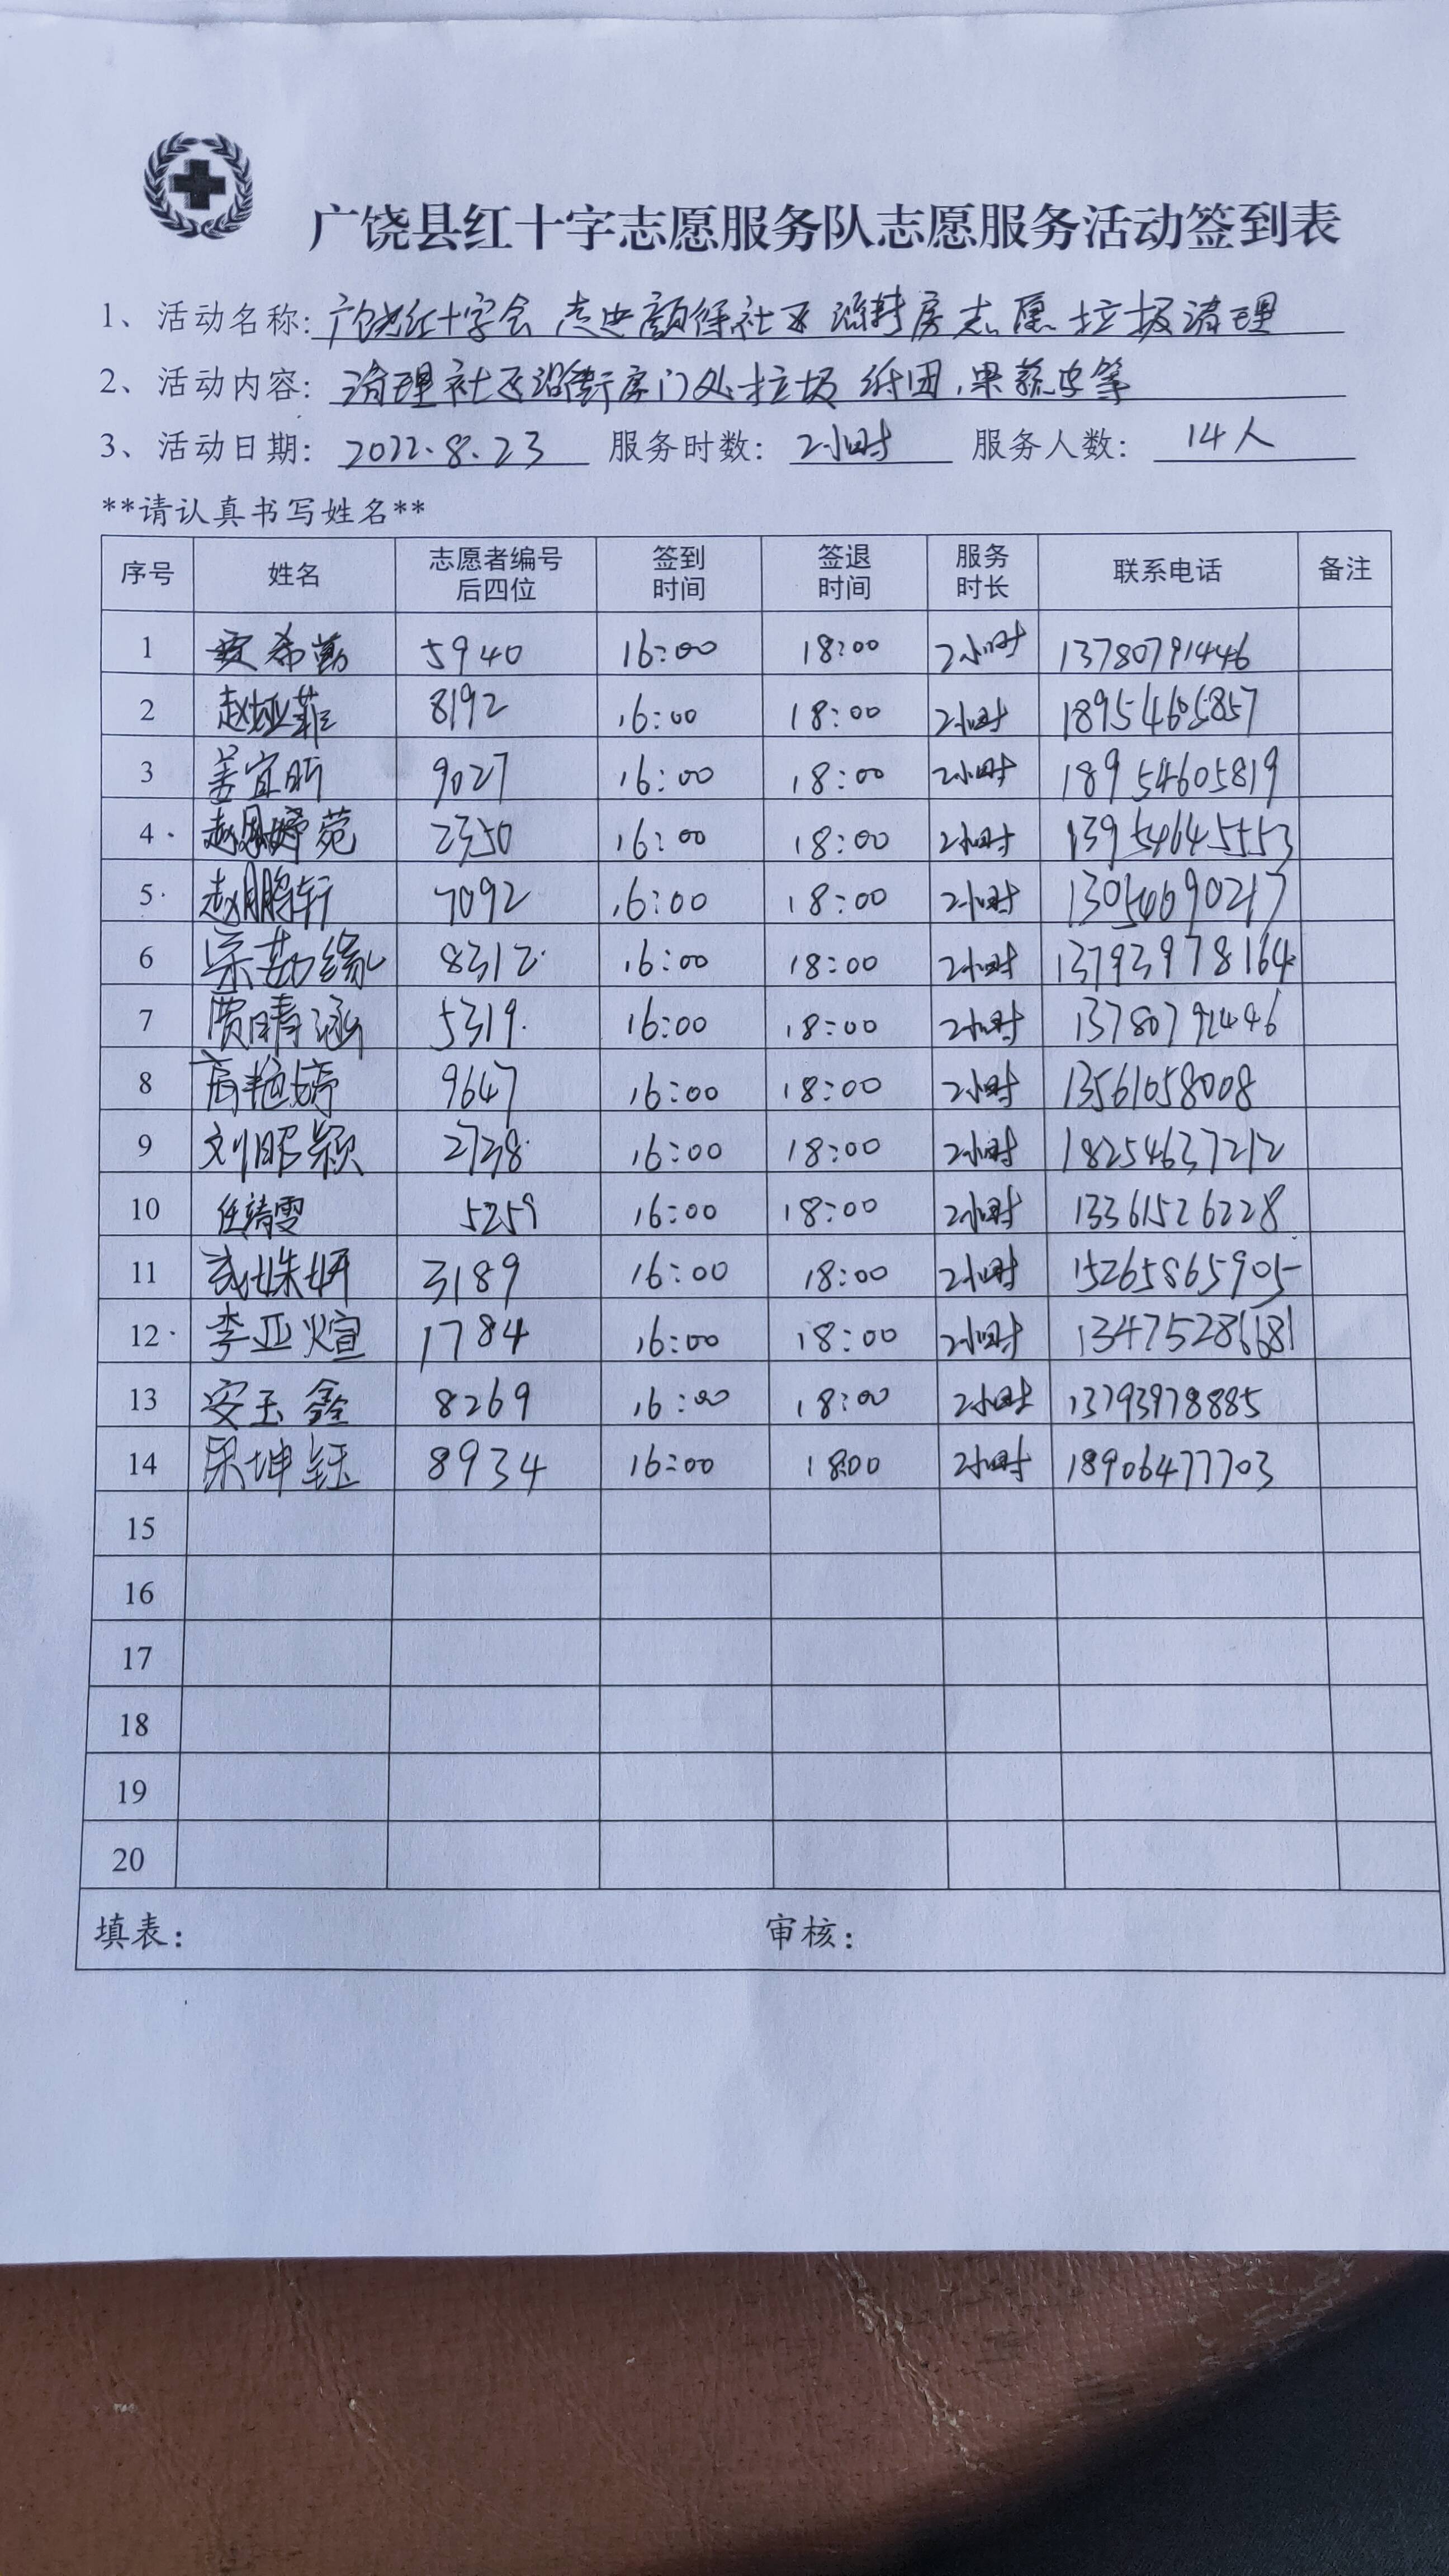 广饶县红十字志愿服务队志愿服务活动签到表
1、活动名称: 广饶红十字会 走进颜徐社区 沿街房志愿垃圾清理
2、活动内容: 清理社区沿街房门处垃圾 纸团,果蔬皮等
3、活动日期: 2022.8.23 服务时数: 2小时 服务人数: 14人
**请认真书写姓名**
序号 姓名 志愿者编号后四位 签到时间 签退时间 服务时长 联系电话 备注
1 希勤 5940 16:00 18:00 2小时 13780791446
2 赵娅菲 8192 16:00 18:00 2小时 18954605857
3 姜宜昕 9027 16:00 18:00 2小时 18954605819
4 赵 菀 2350 16:00 18:00 2小时 13954645553
5 赵鹏轩 7092 16:00 18:00 2小时 13054690217
6 宋 缘 8312 16:00 18:00 2小时 13793978164
7 贾晴涵 5319 16:00 18:00 2小时 13780791446
8 艳婷 9647 16:00 18:00 2小时 13561058008
9 刘昭颖 2738 16:00 18:00 2小时 18254637212
10 任靖雯 5259 16:00 18:00 2小时 13361526228
11 武姝妍 3189 16:00 18:00 2小时 15265865905
12 李亚煊 1784 16:00 18:00 2小时 13475286681
13 安玉鑫 8269 16:00 18:00 2小时 13793978885
14 坤钰 8934 16:00 18:00 2小时 18906477703
15
16
17
18
19
20
填表: 审核: